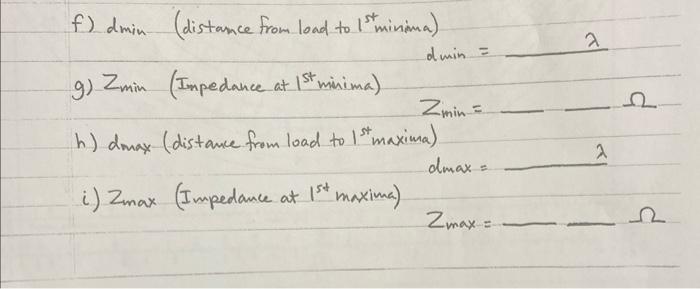 f) dmin (distance from load to 1st minima)
dmin = ______ λ
g) Zmin (Impedance at 1st minima)
Zmin = ___ ___ Ω
h) dmax (distance from load to 1st maxima)
dmax = ______ λ
i) Zmax (Impedance at 1st maxima)
Zmax = ___ ___ Ω